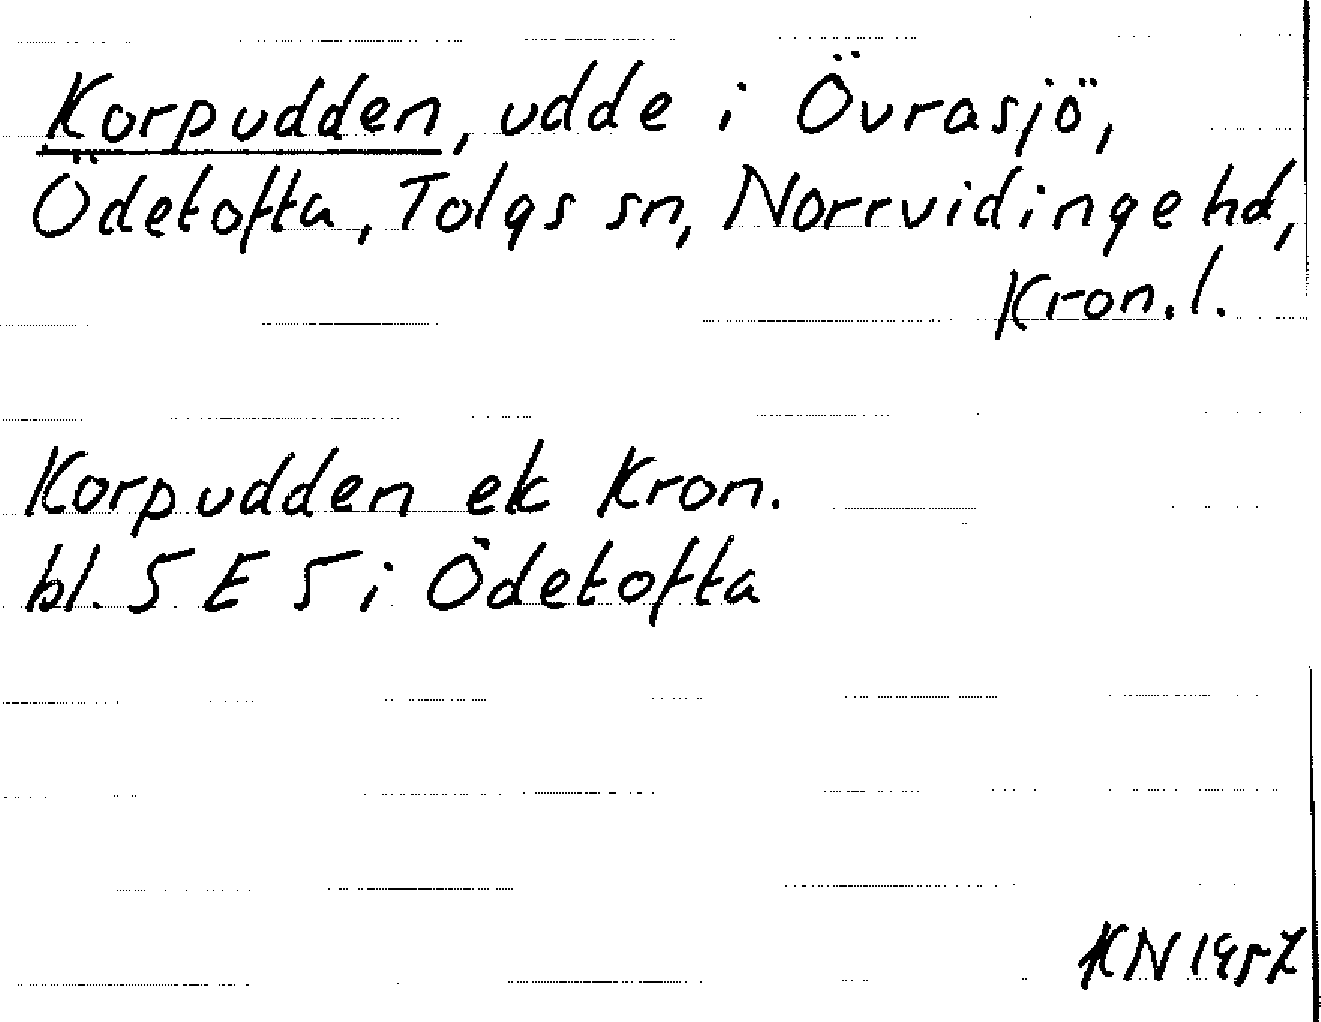 Korpudden, udde i Övrasjö,
Ödetofta, Tolgs sn, Norrvidinge hd,
Kron.l.
Korpudden ek Kron.
bl. 5 E 5 i Ödetofta
KN 1957